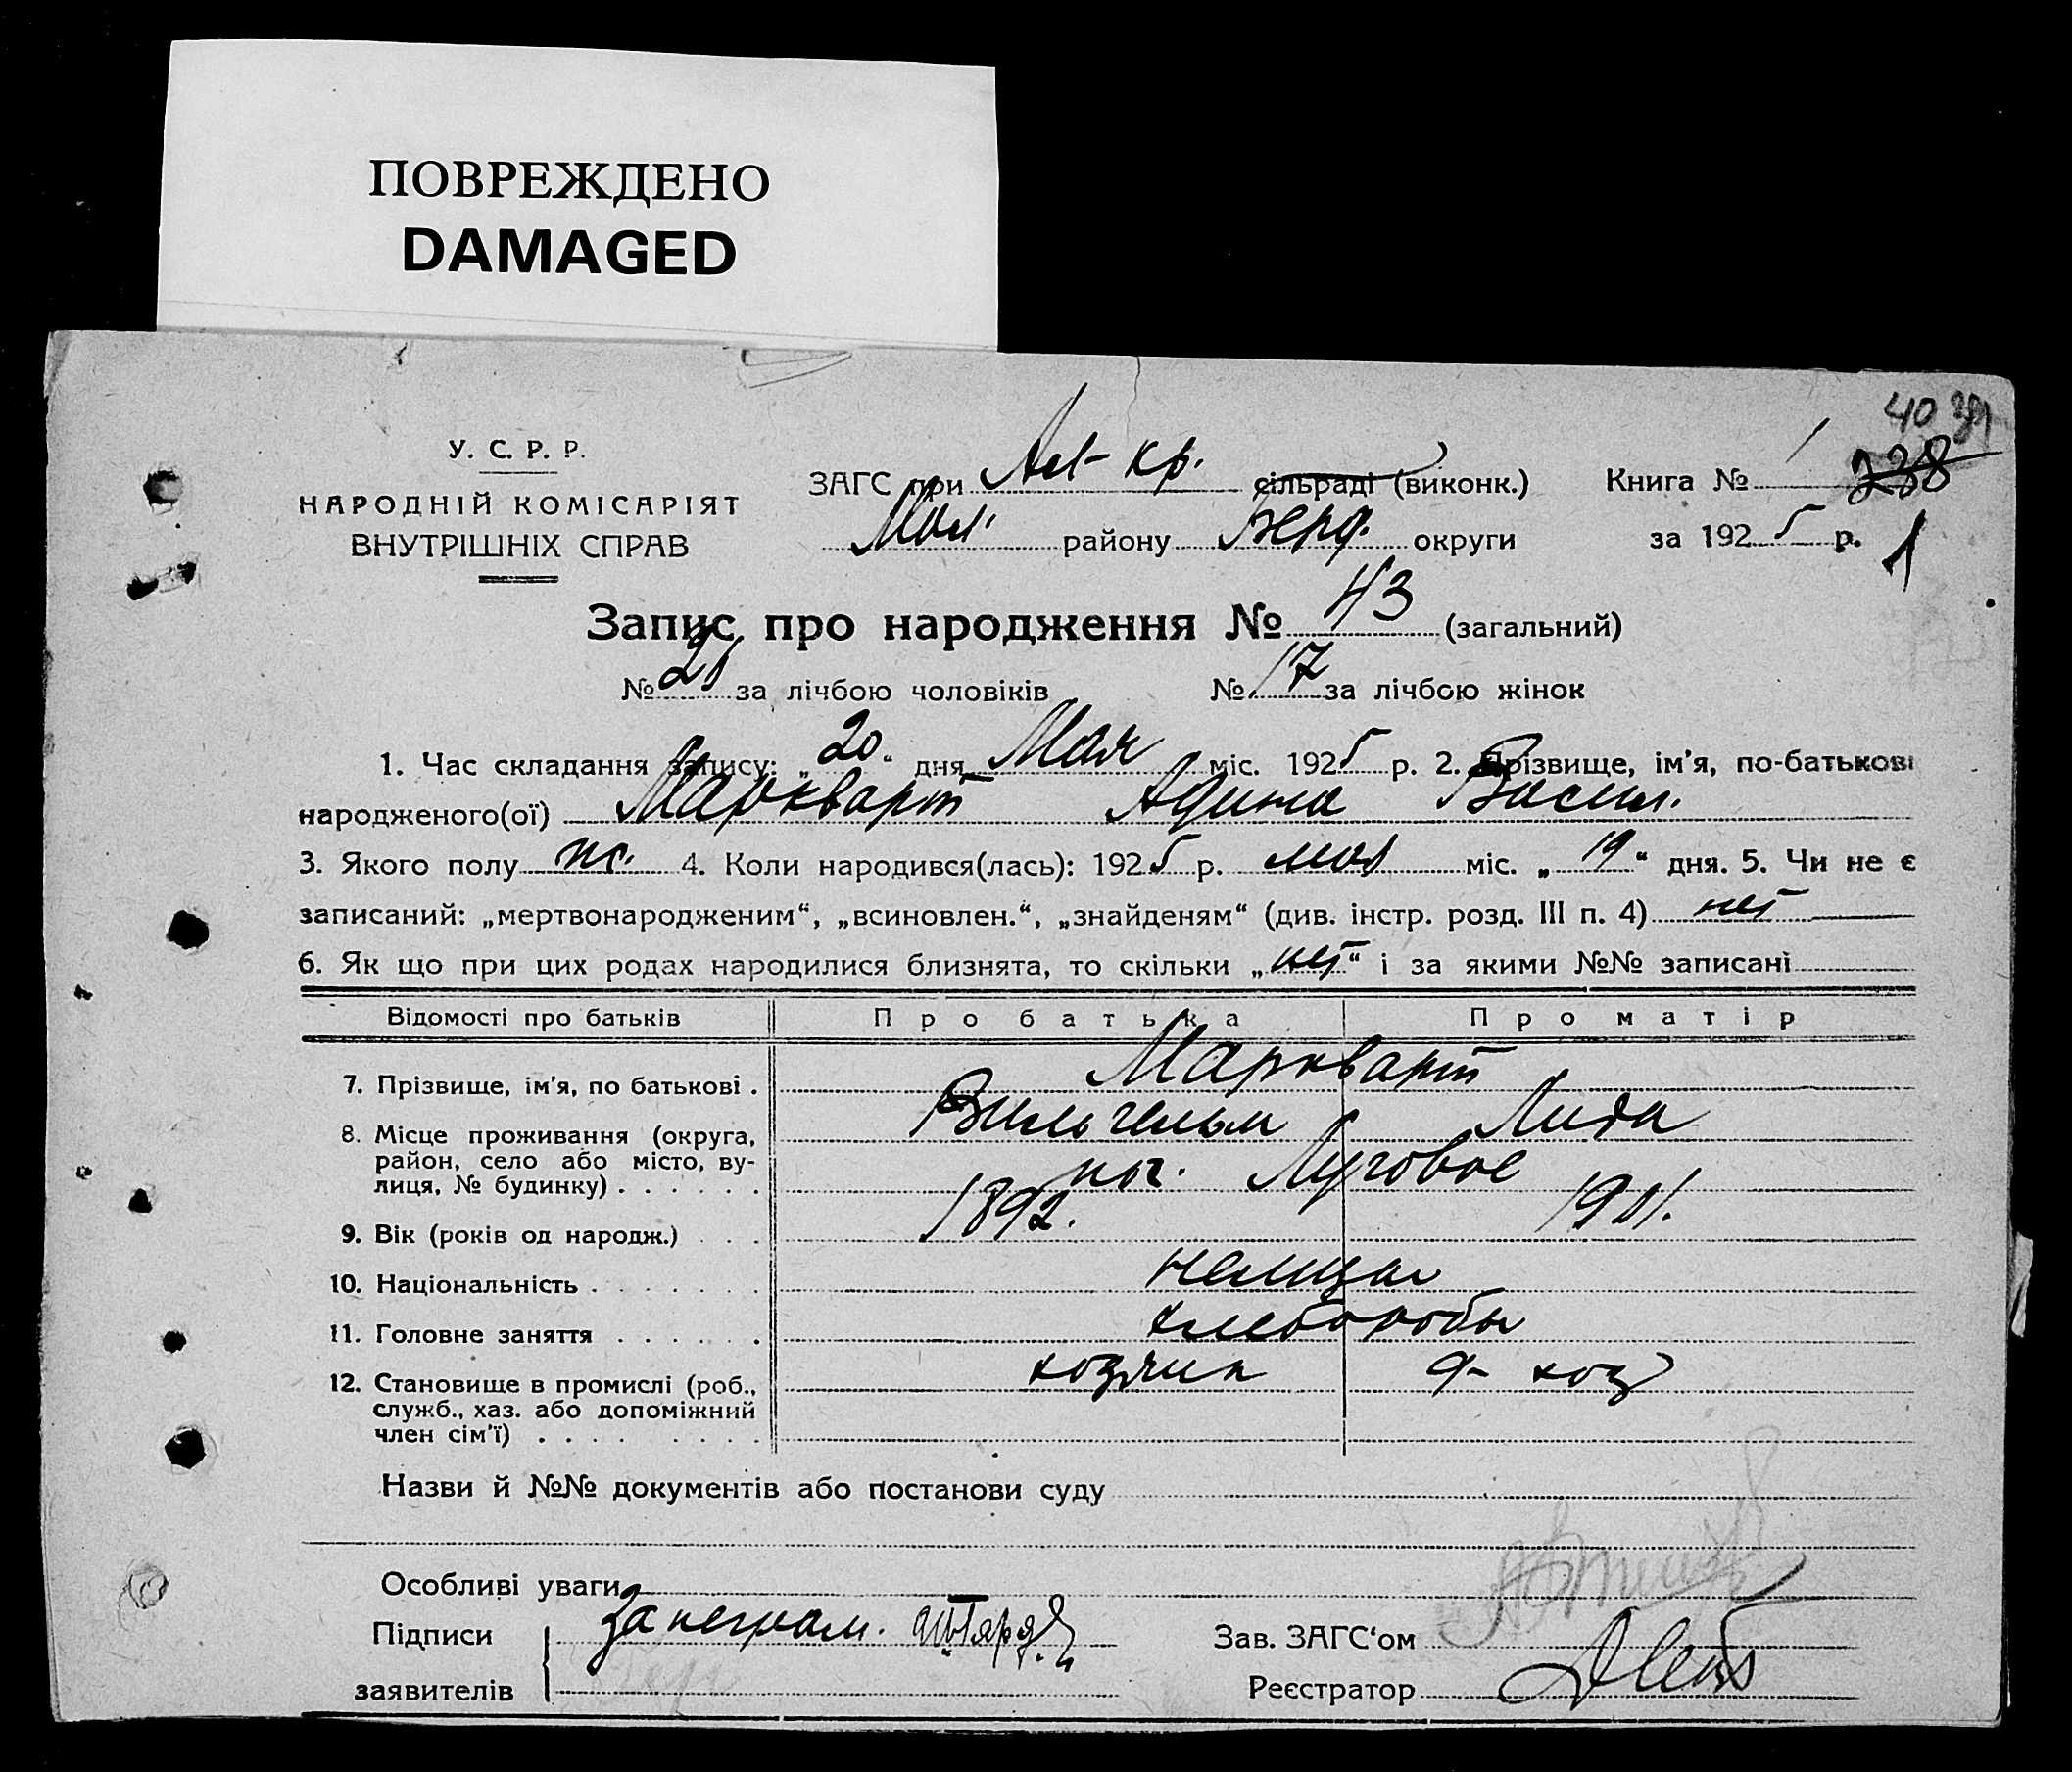 ПОВРЕЖДЕНО
DAMAGED
40 39
У. С. Р. Р.
НАРОДНІЙ КОМІСАРІЯТ
ВНУТРІШНІХ СПРАВ
ЗАГС при кр. сільраді (виконк.)
Мол. району Берд. округи
Книга № 1 238
за 1925 р. 1
Запис про народження № 43 (загальний)
№ за лічбою чоловіків № 17 за лічбою жінок
1. Час складання запису: „20“ дня Мая міс. 1925 р. 2. Прізвище, ім'я, по-батькові
народженого(ої) Маркварт Адина Васил.
3. Якого полу 4. Коли народився(лась): 1925 р. мая міс. „19“ дня. 5. Чи не є
записаний: „мертвонародженим“, „всиновлен.“, „знайденям“ (див. інстр. розд. III п. 4) нет
6. Як що при цих родах народилися близнята, то скільки „нет“ і за якими №№ записані
Відомості про батьків Про батька Про матір
7. Прізвище, ім'я, по батькові . Маркварт
Вильгельм Лида
8. Місце проживання (округа,
район, село або місто, ву-
лиця, № будинку) . . . . . . Луговое
9. Вік (років од народж.) . . . 1892. 1901.
10. Національність . . . . . . . немцы
11. Головне заняття . . . . . . хлеборобы
12. Становище в промислі (роб.,
служб., хаз. або допоміжний
член сім'ї) . . . . . . . . . хозяин д- хоз
Назви й №№ документів або постанови суду
Особливі уваги
Підписи За неграм.
заявителів
Зав. ЗАГС'ом
Реєстратор